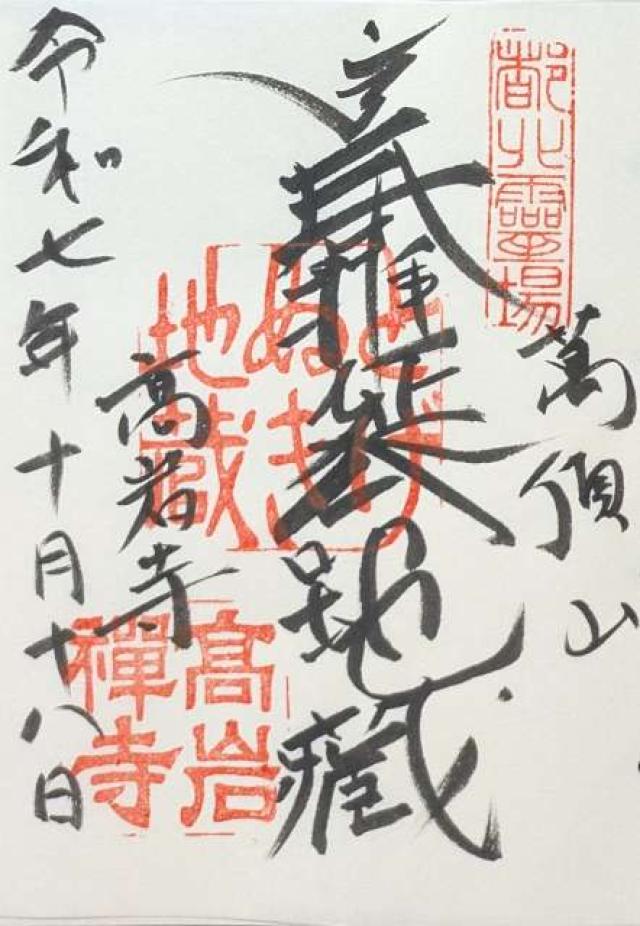 都北靈場
萬頂山
地蔵
とげ
ぬき
地藏
高岩寺
高岩
禪寺
令和七年十月十八日